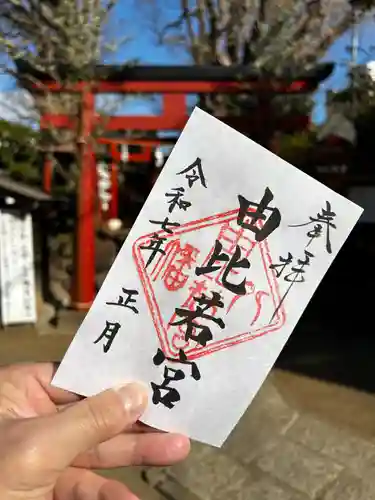 奉拝
由比若宮
令和七年
正月